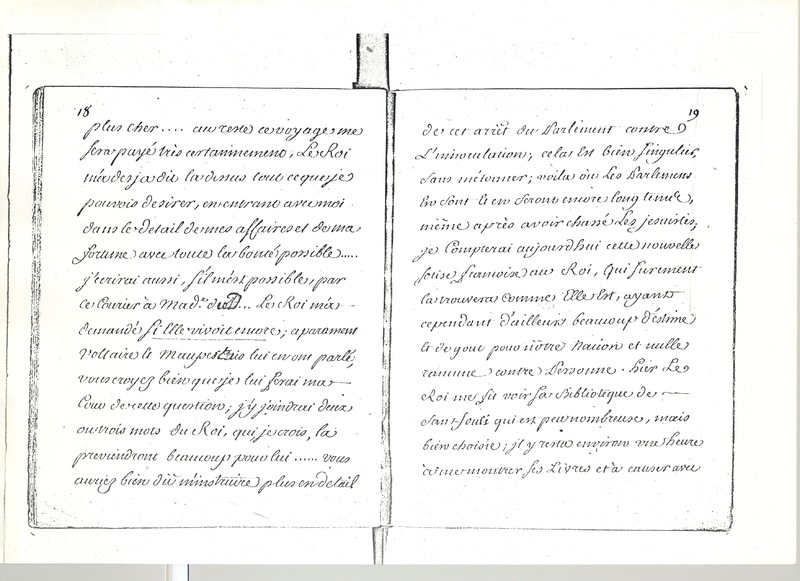 18
plus cher .... au reste ce voyage me
sera payé très certainnement, Le Roi
m'a desja dit la dessus tout ce que je
pouvois desirer, en entrant avec moi
dans le detail de mes affaires et de ma
fortune avec toute la bonté possible.....
j'ecrirai aussi, s'il m'est possible, par
ce Courier à Mad.e du D... Le Roi m'a
demandé si Elle vivoit encore; aparament
Voltaire et Maupertuis lui en ont parlé,
vous croyez bien que je lui ferai ma
Cour de cette question; j'y joindrai deux
ou trois mots du Roi, qui, je crois, la
previendront beaucoup pour lui ...... vous
auriez bien dû m'instruire plus en detail
19
de cet arrêt du Parlement contre
L'innoculation; cela Est bien singulier,
sans m'étonner; voila où Les Parlemens
En sont et en seront encore long tems,
même après avoir chassé Les jesuites;
je Compterai aujourdhui cette nouvelle
sotise francoise au Roi, Qui surement
la trouvera Comme Elle Est, ayant
cependant d'ailleurs beaucoup d'estime
et de gout pour nôtre Nation et nulle
rancune contre Personne. hier Le
Roi me fit voir sa Biblioteque de
Sant-Souci qui est peu nombreuse, mais
bien choisie; il y resta environ une heure
à me montrer ses Livres et à causer avec